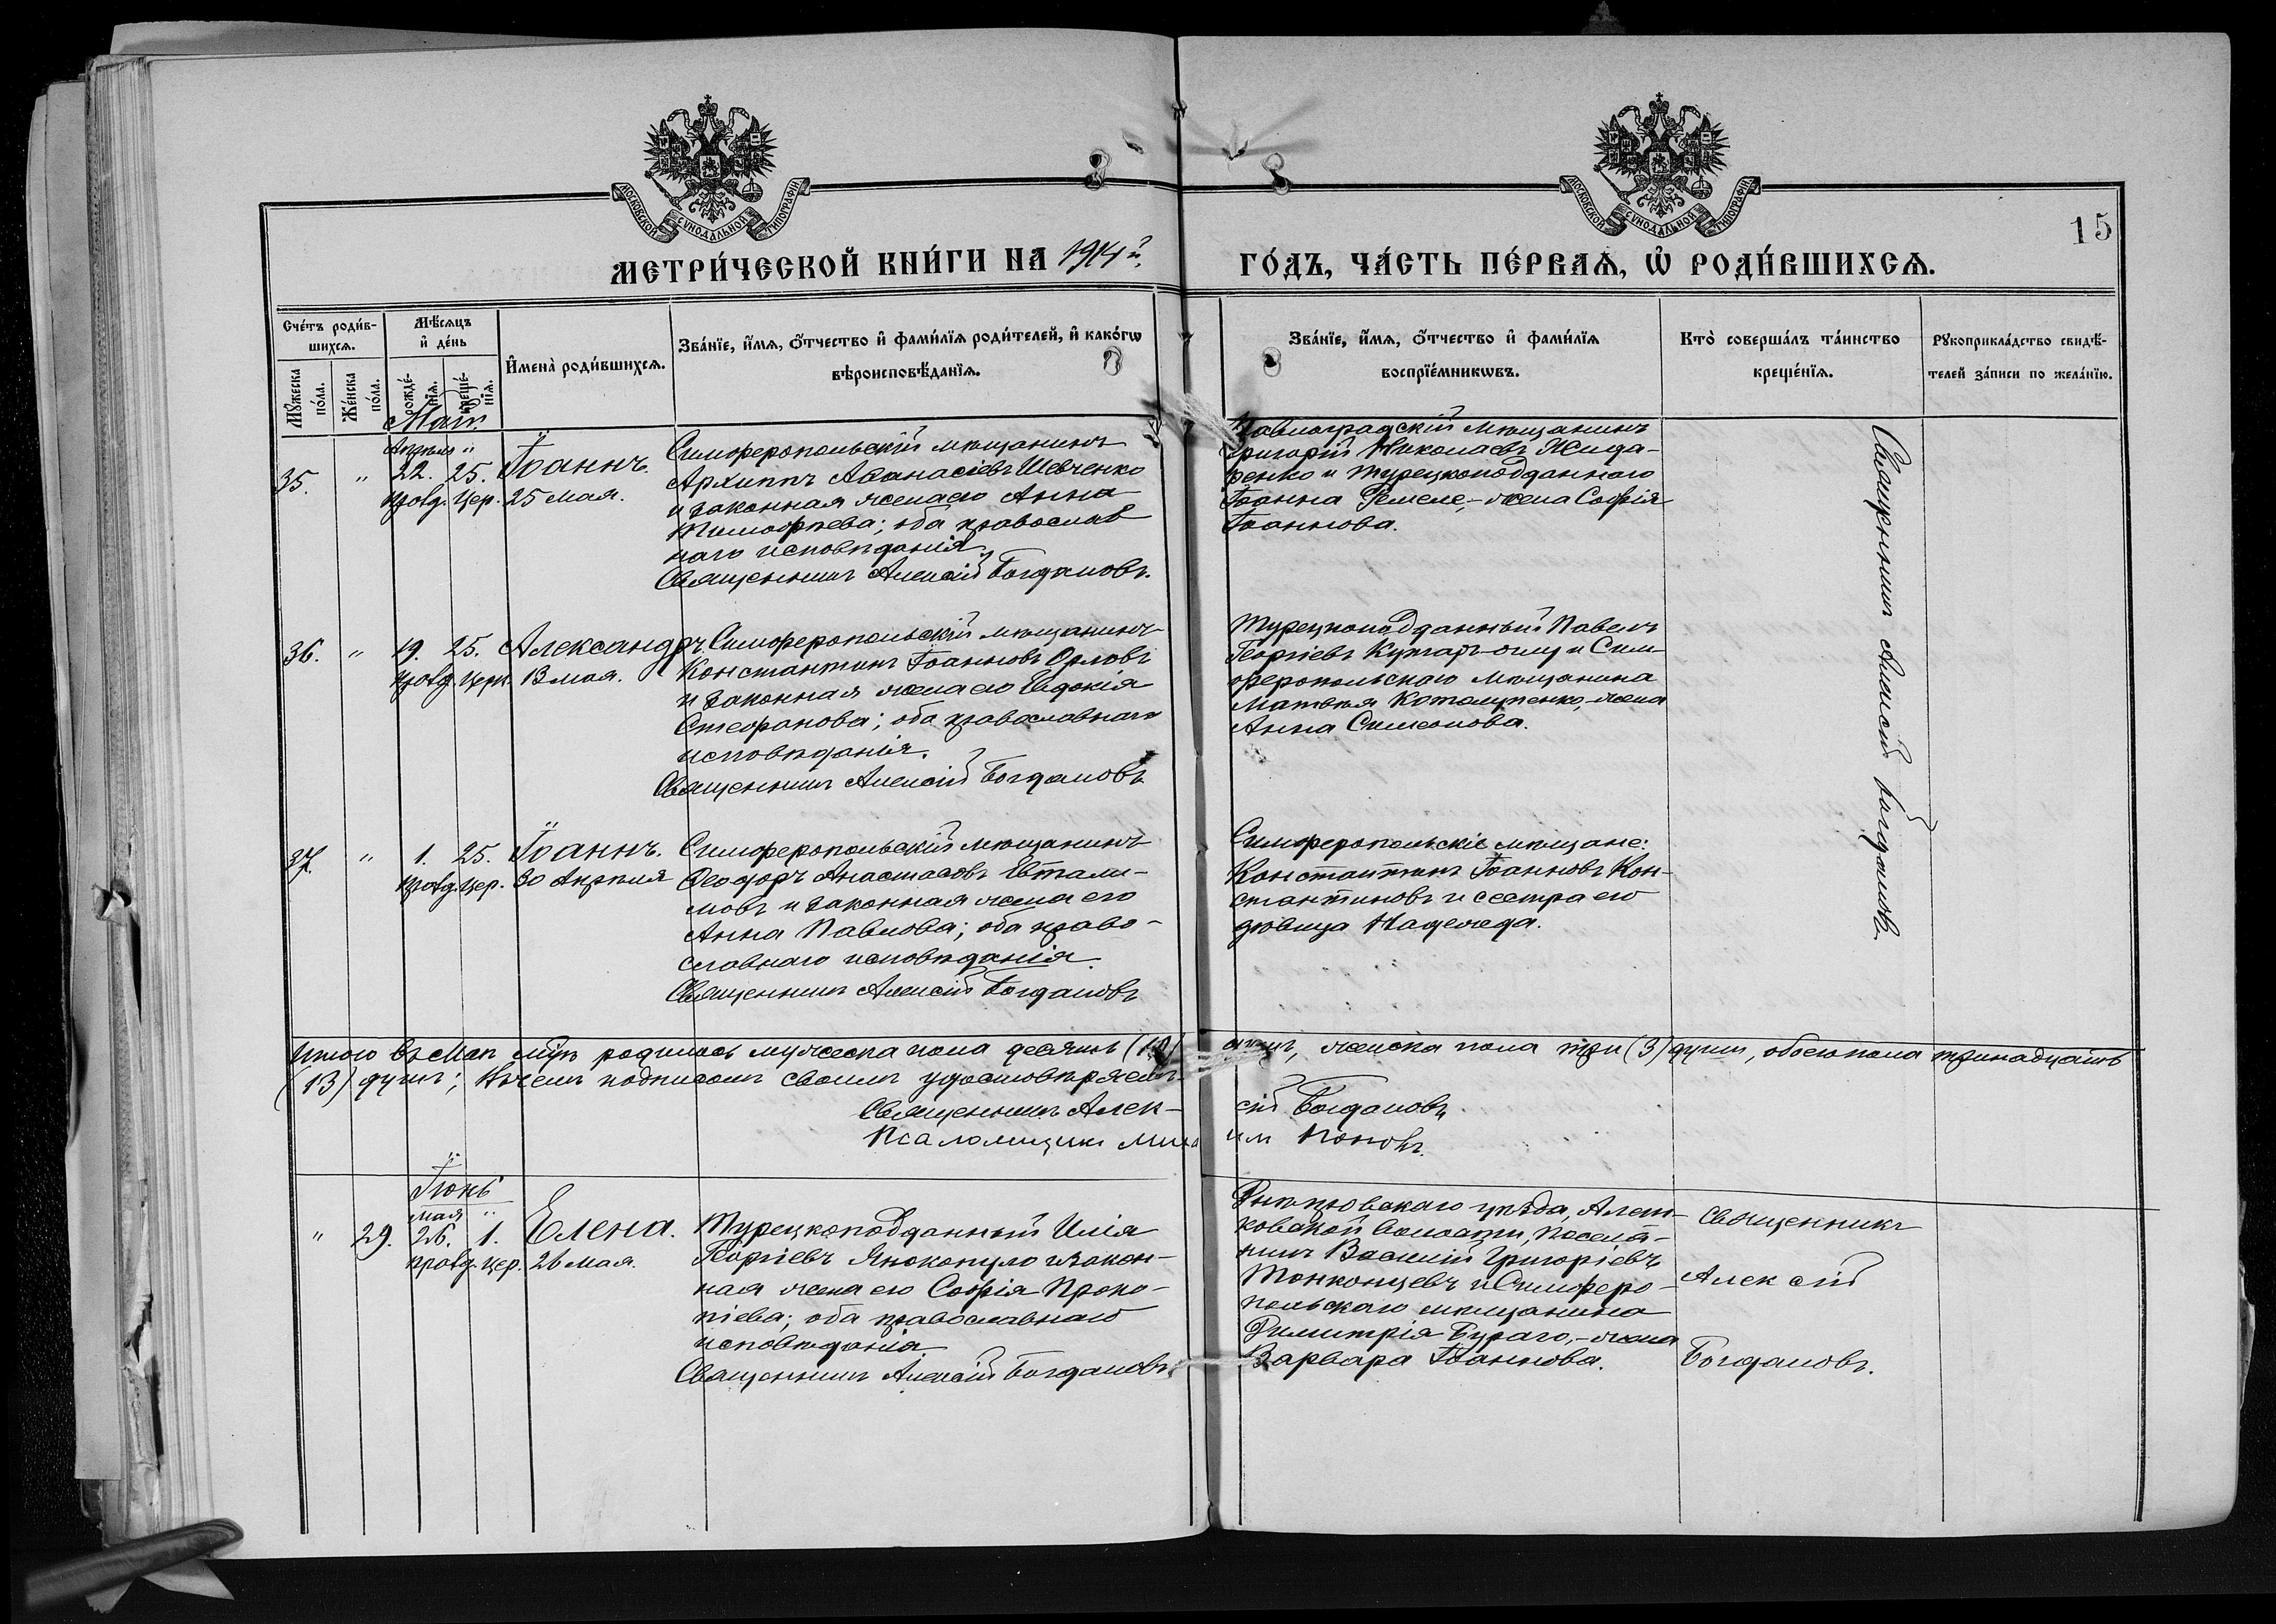 МОСКОВСКОЙ СУНОДАЛЬНОЙ ТИПОГРАФІИ
МОСКОВСКОЙ СУНОДАЛЬНОЙ ТИПОГРАФІИ
15
МЕТРИ́ЧЕСКОЙ КНИ́ГИ НА 1914й.
ГО́ДЪ, ЧА́СТЬ ПЕ́РВАѦ, Ѡ҆ РОДИ́ВШИХСѦ.
Сче́тъ роди́в-
шихсѧ.
Мꙋ́жеска по́ла.
Же́нска по́ла.
Мѣ́сѧцъ
и҆ де́нь
рожде́-
нїѧ.
креще́-
нїѧ.
И҆мена̀ роди́вшихсѧ.
Зва́нїе, и҆́мѧ, ѻ҆́тчество и҆ фами́лїѧ роди́телей, и҆ како́гѡ
вѣроисповѣ́данїѧ.
Зва́нїе, и҆́мѧ, ѻ҆́тчество и҆ фами́лїѧ
воспрїе́мникѡвъ.
Кто̀ соверша́лъ та́инство
креще́нїѧ.
Рꙋкоприкла́дство свидѣ́-
телей за́писи по жела́нїю.
Май.
Апрѣля "
35. " 22. 25. Іоаннъ.
правд. цер. 25 мая.
Симферопольскій мѣщанинъ
Архиппъ Аѳанасіевъ Шевченко
и законная жена его Анна
Тимоѳеева; оба православ
наго исповѣданія.
Священникъ Алексій Богдановъ.
Павлоградскій мѣщанинъ
Григорій Николаевъ Жида-
ренко и турецкоподданнаго
Іоанна Гемеле,- жена Софія
Іоаннова.
Священникъ Алексій Богдановъ.
36. " 19. 25. Александръ.
правд. церк. 13 мая.
Симферопольскій мѣщанинъ
Константинъ Іоанновъ Орловъ
и законная жена его Евдокія
Стефанова; оба православнаго
исповѣданія.
Священникъ Алексій Богдановъ
Турецкоподданный Павелъ
Георгіевъ и Сим-
феропольскаго мѣщанина
Матвѣя жена
Анна Симеонова.
37. " 1. 25. Іоаннъ.
правд. цер. 30 Апрѣля
Симферопольскій мѣщанинъ
Ѳеодоръ Анастасовъ Евтали-
мовъ и законная жена его
Анна Павлова; оба право-
славнаго исповѣданія.
Священникъ Алексій Богдановъ
Симферопольскіе мѣщане:
Константинъ Іоанновъ Кон-
стантиновъ и сестра его
дѣвица Надежда.
Итого въ Маѣ мц̃ѣ родилось мужеска пола десять (10) душъ, женска пола три (3) души, обоего пола тринадцать
(13) душъ; въ чемъ подписомъ своимъ удостовѣряемъ
Священникъ Алек- сій Богдановъ
Псаломщикъ Миха илъ Поповъ.
Іюнь
мая "
" 29. 26. 1. Елена.
правд. цер. 26 мая.
Турецкоподданный Илія
Георгіевъ Янокопуло и закон-
ная жена его Софія Проко-
піева; оба православнаго
исповѣданія
Священникъ Алексій Богдановъ.
Днѣпровскаго уѣзда, Алеш-
ковской волости, поселя-
нинъ Василій Григорьевъ
Тонконцевъ и Симферо-
польскаго мѣщанина
Димитрія Бураго,- жена
Варвара Іоаннова.
Священникъ
Алексій
Богдановъ.